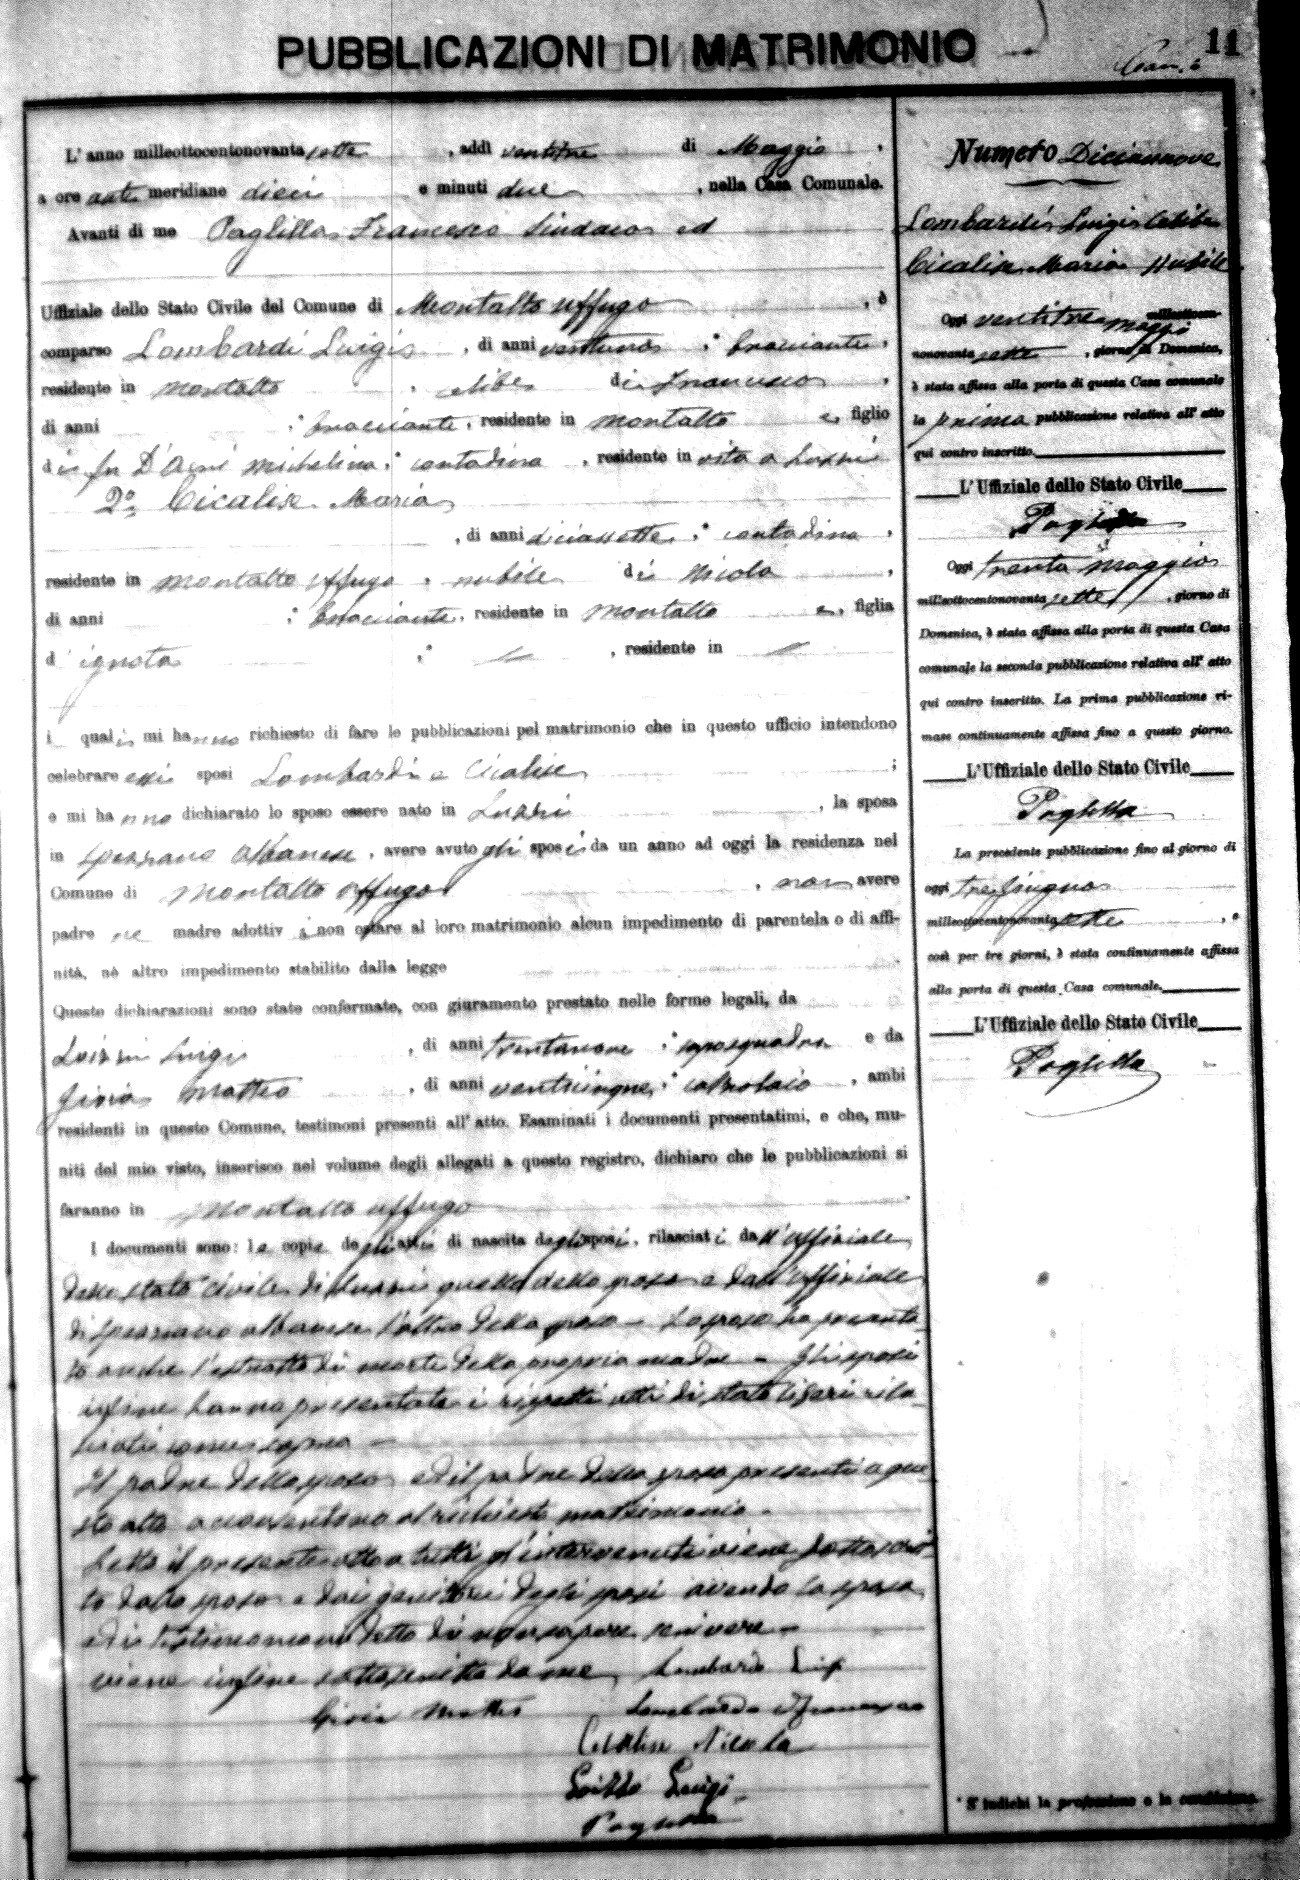 PUBBLICAZIONI DI MATRIMONIO
11
L'anno milleottocentonovanta sette, addì ventitre di Maggio,
a ore anti meridiane dieci e minuti due, nella Casa Comunale.
Avanti di me Paglilla Francesco Sindaco ed
Uffiziale dello Stato Civile del Comune di Montalto Uffugo, è
comparso Lombardi Luigi, di anni ventuno; bracciante,
residente in Montalto, celibe di Francesco,
di anni ; bracciante, residente in Montalto e, figlio
di fu D'Acri Michelina; contadina, residente in vita a Luzzi
2° Cicalise Maria
, di anni diciassette; contadina,
residente in Montalto Uffugo, nubile di Nicola,
di anni ; bracciante, residente in Montalto e, figlia
d' ignota ; , residente in
i quali mi hanno richiesto di fare le pubblicazioni pel matrimonio che in questo ufficio intendono
celebrare essi sposi Lombardi e Cicalise ;
e mi hanno dichiarato lo sposo essere nato in Luzzi, la sposa
in Spezzano Albanese, avere avuto gli sposi da un anno ad oggi la residenza nel
Comune di Montalto Uffugo, non avere
padre ne madre adottivi, non ostare al loro matrimonio alcun impedimento di parentela o di affi-
nità, nè altro impedimento stabilito dalla legge
Queste dichiarazioni sono state confermate, con giuramento prestato nelle forme legali, da
Luigi, di anni trentanove; caposquadra e da
Gioia Matteo, di anni venticinque; calzolaio, ambi
residenti in questo Comune, testimoni presenti all'atto. Esaminati i documenti presentatimi, e che, mu-
niti del mio visto, inserisco nel volume degli allegati a questo registro, dichiaro che le pubblicazioni si
faranno in Montalto Uffugo
I documenti sono: le copie degli atti di nascita degli sposi, rilasciati dall'uffiziale
dello stato civile di Luzzi quella dello sposo e dall'uffiziale
di Spezzano Albanese l'altra della sposa - Lo sposo ha presenta-
to anche l'estratto di morte della propria madre - Gli sposi
infine hanno presentato i rispetti atti di stato liberi rila-
sciati come sopra -
Il padre dello sposo ed il padre della sposa presenti a que-
sto atto acconsentono al richiesto matrimonio -
Letto il presente atto a tutti gl'intervenuti viene sottoscrit-
to dallo sposo e dai genitori degli sposi avendo la sposa
detto di non sapere scrivere -
viene infine sottoscritto da me Lombardi Luigi
Gioia Matteo Lombardi Francesco
Cicalise Nicola
Luigi
Paglilla
Numero Diciannove
Lombardi Luigi Celibe
Cicalise Maria Nubile
Oggi ventitre maggio milleottocen-
nonovanta sette, giorno di Domenica,
è stata affissa alla porta di questa Casa comunale
la prima pubblicazione relativa all'atto
qui contro inscritto.
L'Uffiziale dello Stato Civile
Paglilla
Oggi trenta maggio
mill'sottocentonovanta sette, giorno di
Domenica, è stata affissa alla porta di questa Casa
comunale la seconda pubblicazione relativa all'atto
qui contro inscritto. La prima pubblicazione ri-
mase continuamente affissa fino a questo giorno.
L'Uffiziale dello Stato Civile
Paglilla
La precedente pubblicazione fino al giorno di
oggi tre Giugno
milleottocentonovanta sette, e
così per tre giorni, è stata continuamente affissa
alla porta di questa Casa comunale.
L'Uffiziale dello Stato Civile
Paglilla
* S'indichi la professione o la condizione.